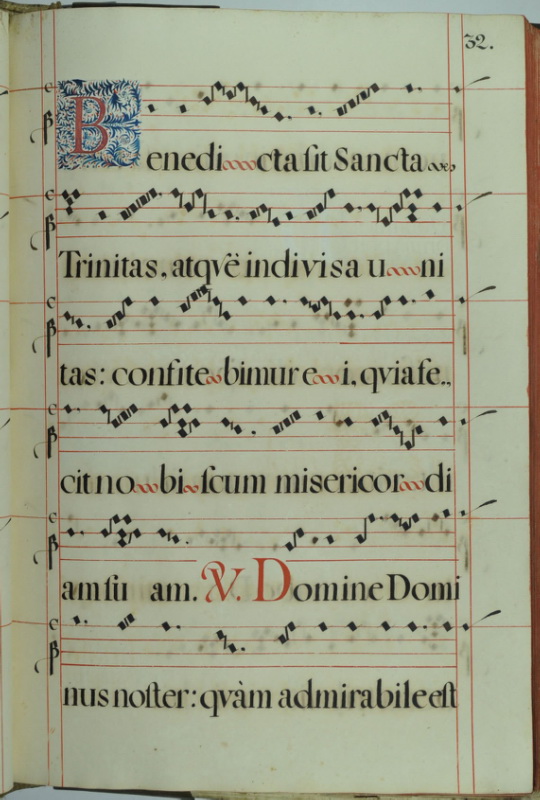 32.
Benedicta ſit Sancta
Trinitas, atqvë indivisa uni
tas: confitebimur ei, qvia fe..
cit nobiſcum misericordi
am ſu am. V. Domine Domi
nus noſter: qvàm admirabile eſt